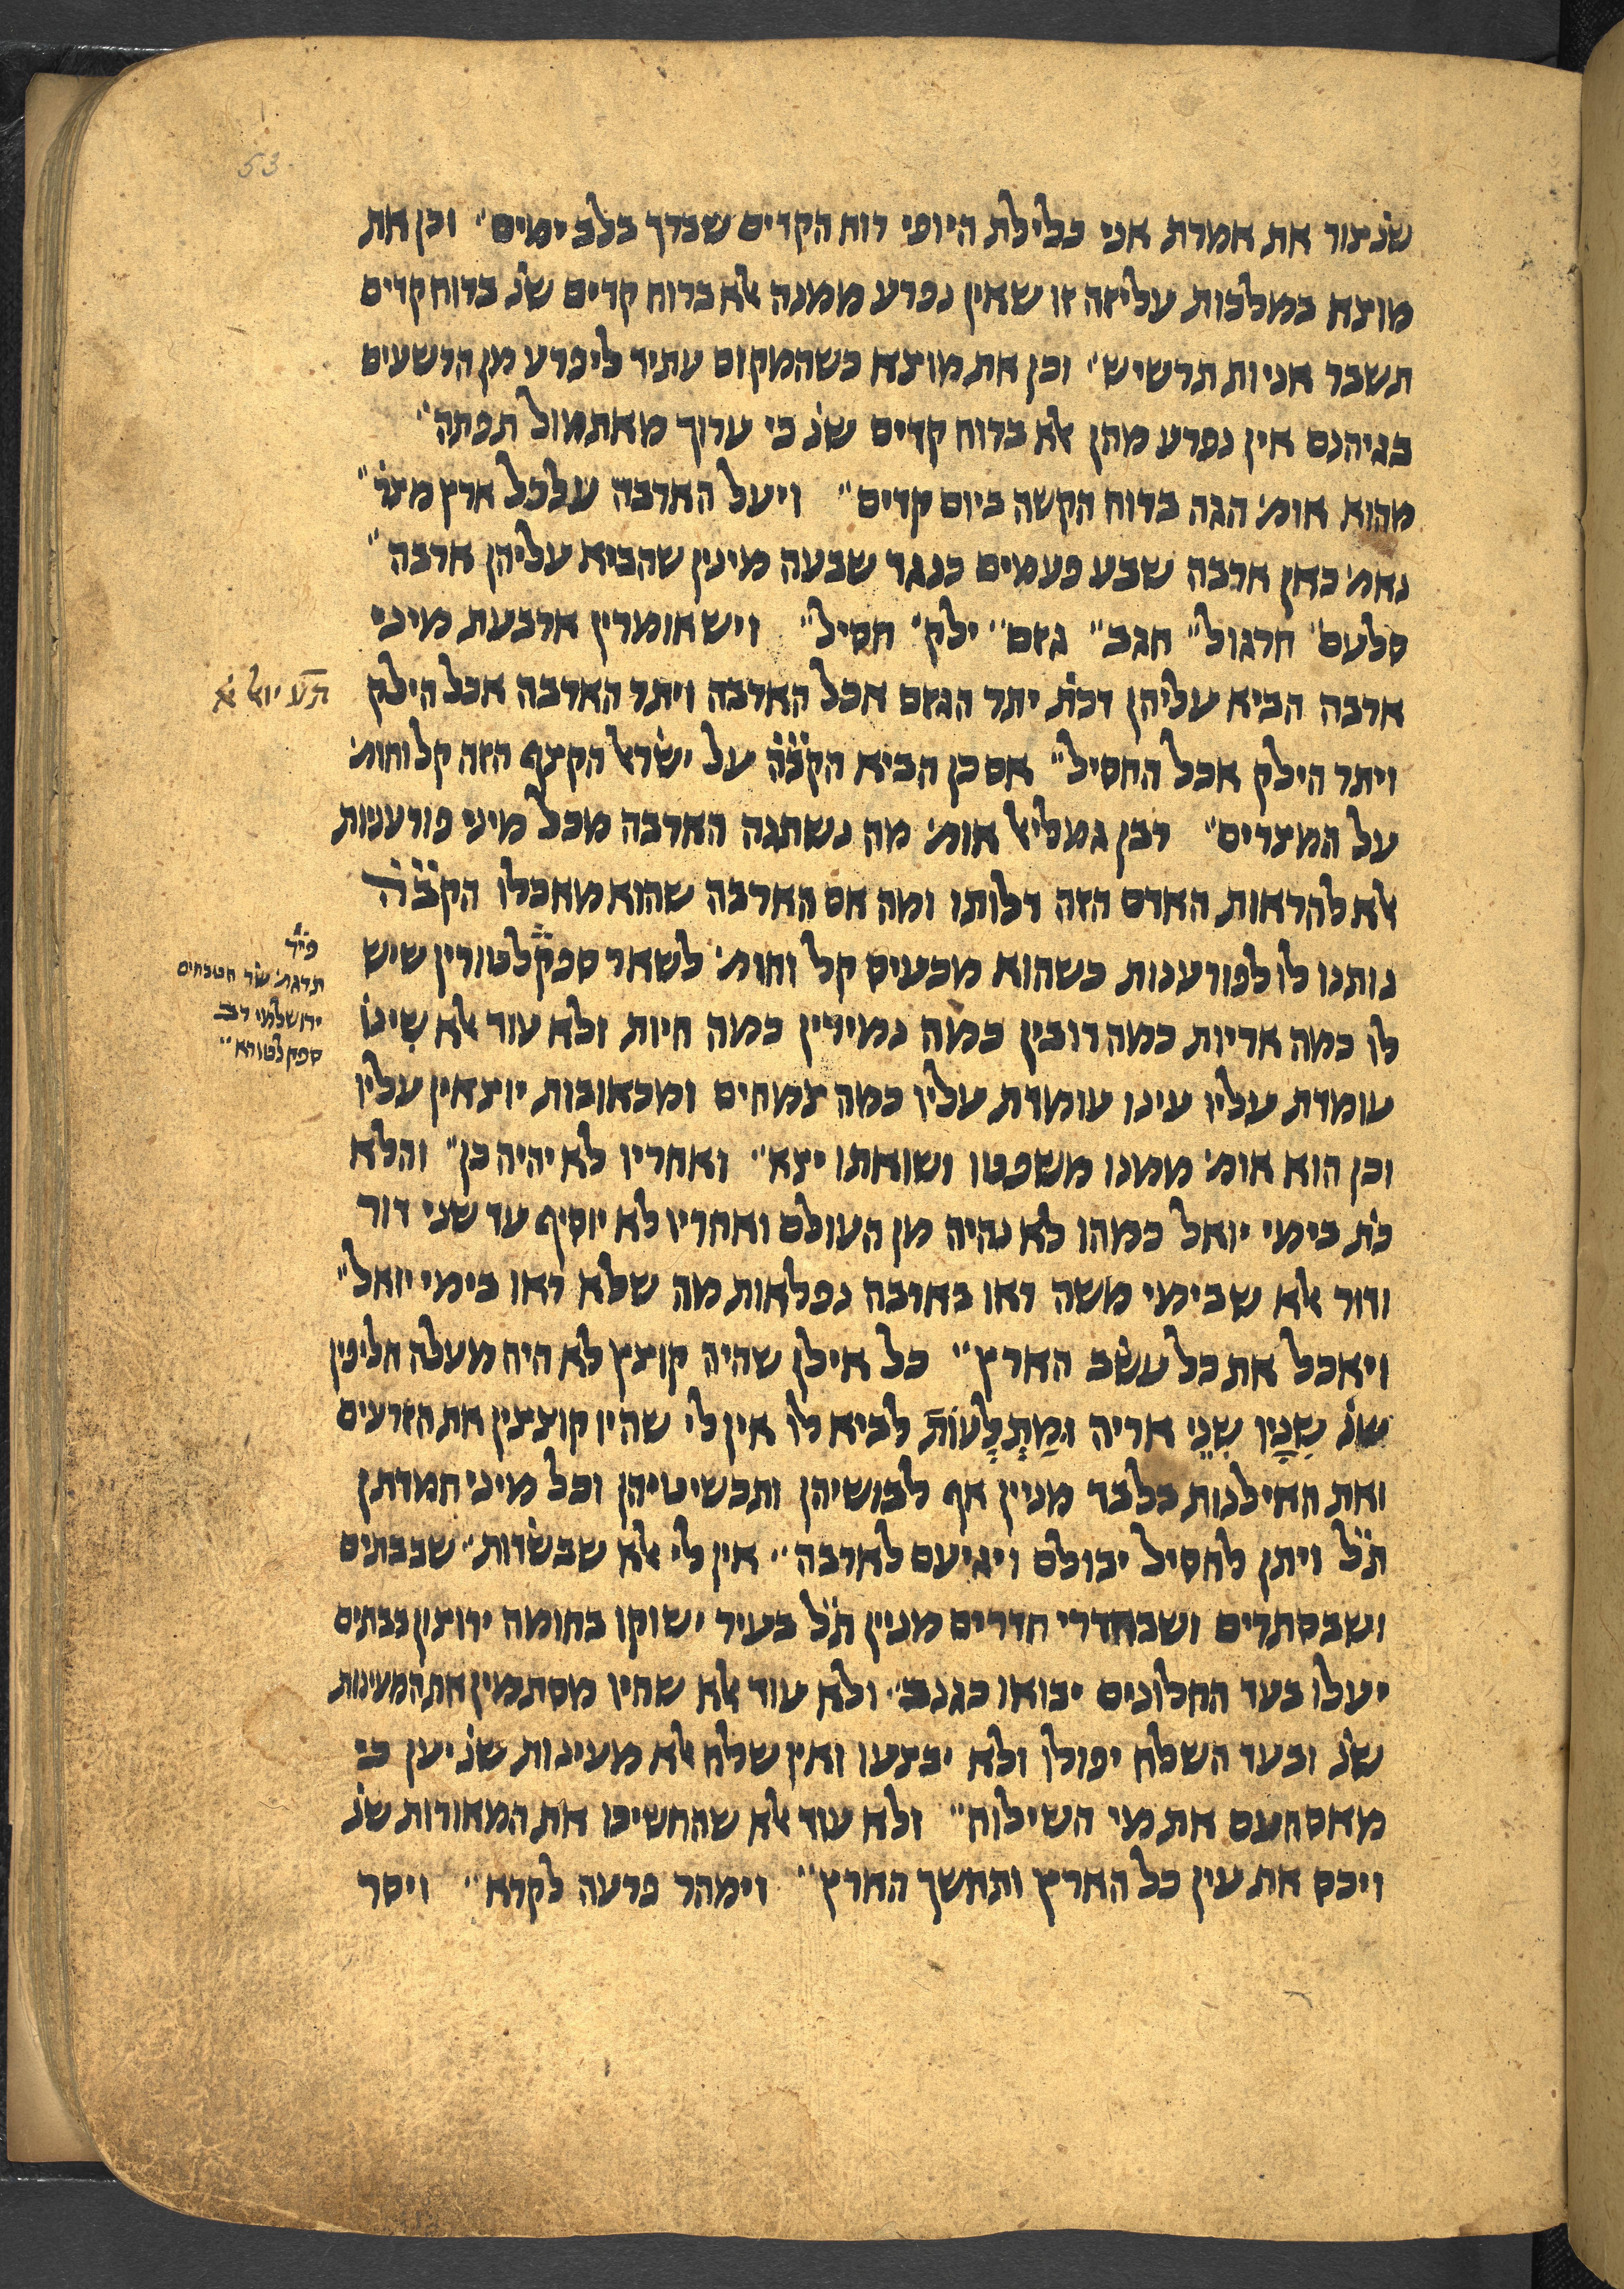 53
שנ צור את אמרת אני כלילת היופי רוח הקדים שברך בלב ימים" וכן את
מוצא במלכות עליזה זו שאין נפרע ממנה אלא ברוח קדים שנ ברוח קדים
תשבר אניות תרשיש" וכן את מוצא כשהמקום עתיד ליפרע מן הרשעים
בגיהנם אין נפרע מהן אלא ברוח קדים שנ כי ערוך מאתמול תפתה"
מהוא אומ' הגה ברוח הקשה ביום קדים" ויעל הארבה על כל ארץ מצר"
נאמ' כאן ארבה שבע פעמים כנגד שבעה מינין שהביא עליהן ארבה"
סלעם" חרגול" חגב" גזם" ילק" חסיל" ויש אומרין ארבעת מיני
ארבה הביא עליהן דכת יתר הגזם אכל הארבה ויתר הארבה אכל הילק
תע יואל א
ויתר הילק אכל החסיל" אם כן הביא הקבה על ישראל הקצף הזה קל וחומ'
על המצרים" רבן גמליאל אומ' מה נשתנה הארבה מכל מיני פורענות
אלא להראות האדם הזה דלותו ומה אם הארבה שהוא מאכלו הקבה
נותנו לו לפורענות כשהוא מכעיס קל וחומ' לשאר ספקלטורין שיש
פיר
תרגת' שר הטבחים
ירושלמי רב
ספקלטורא"
לו כמה אריות כמה דובין כמה נמירין כמה חיות ולא עוד אלא שינו
עומדת עליו עינו עומדת עליו כמה צמחים ומכאובות יוצאין עליו
וכן הוא אומ' ממנו משפטו ושואתו יצא" ואחריו לא יהיה כן" והלא
כת בימי יואל כמהו לא נהיה מן העולם ואחריו לא יוסיף עד שני דור
ודור אלא שבימי משה ראו בארבה נפלאות מה שלא ראו בימי יואל"
ויאכל את כל עשב הארץ" כל אילן שהיה קוצץ לא היה מעלה חליפין
שנ שניו שני אריה ומתלעות לביא לו אין לי שהיו קוצצין את הזרעים
ואת האילנות בלבד מניין אף לבושיהן ותכשיטיהן וכל מיני חמדתן
תל ויתן לחסיל יבולם ויגיעם לארבה" אין לי אלא שבשדות" שבבתים
ושבסתרים ושבחדרי חדרים מניין תל בעיר ישוקו בחומה ירוצון בבתים
יעלו בעד החלונים יבואו כגנב" ולא עוד אלא שהיו מסתמין את המעינות
שנ ובעד השלח יפולו ולא יבצעו ואין שלח אלא מעינות שנ יען כי
מאס העם את מי השילוח" ולא עוד אלא שהחשיכו את המאורות שנ
ויכס את עין כל הארץ ותחשך הארץ" וימהר פרעה לקרא" ויסר